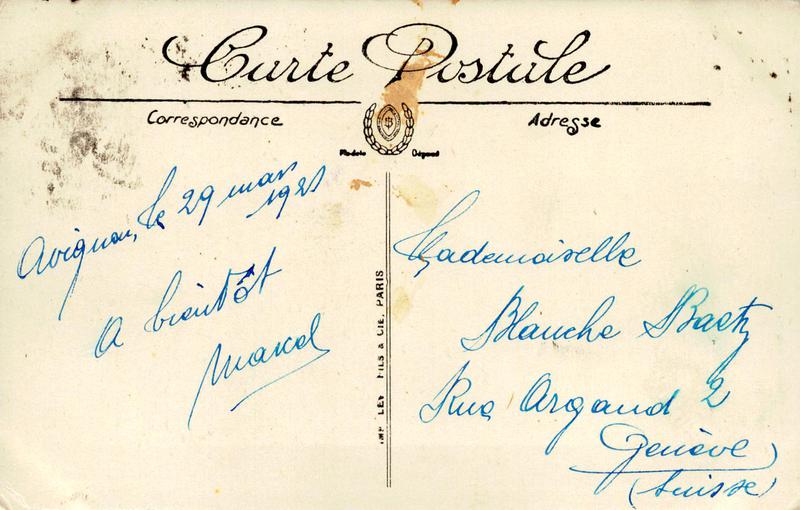 Carte Postale
Correspondance
Adresse
Modèle Déposé
Avignon, le 29 mars
1921
A bientôt
Marcel
IMP. LEV FILS & CIE, PARIS
Mademoiselle
Blanche
Rue Argand 2
Genève
(Suisse)